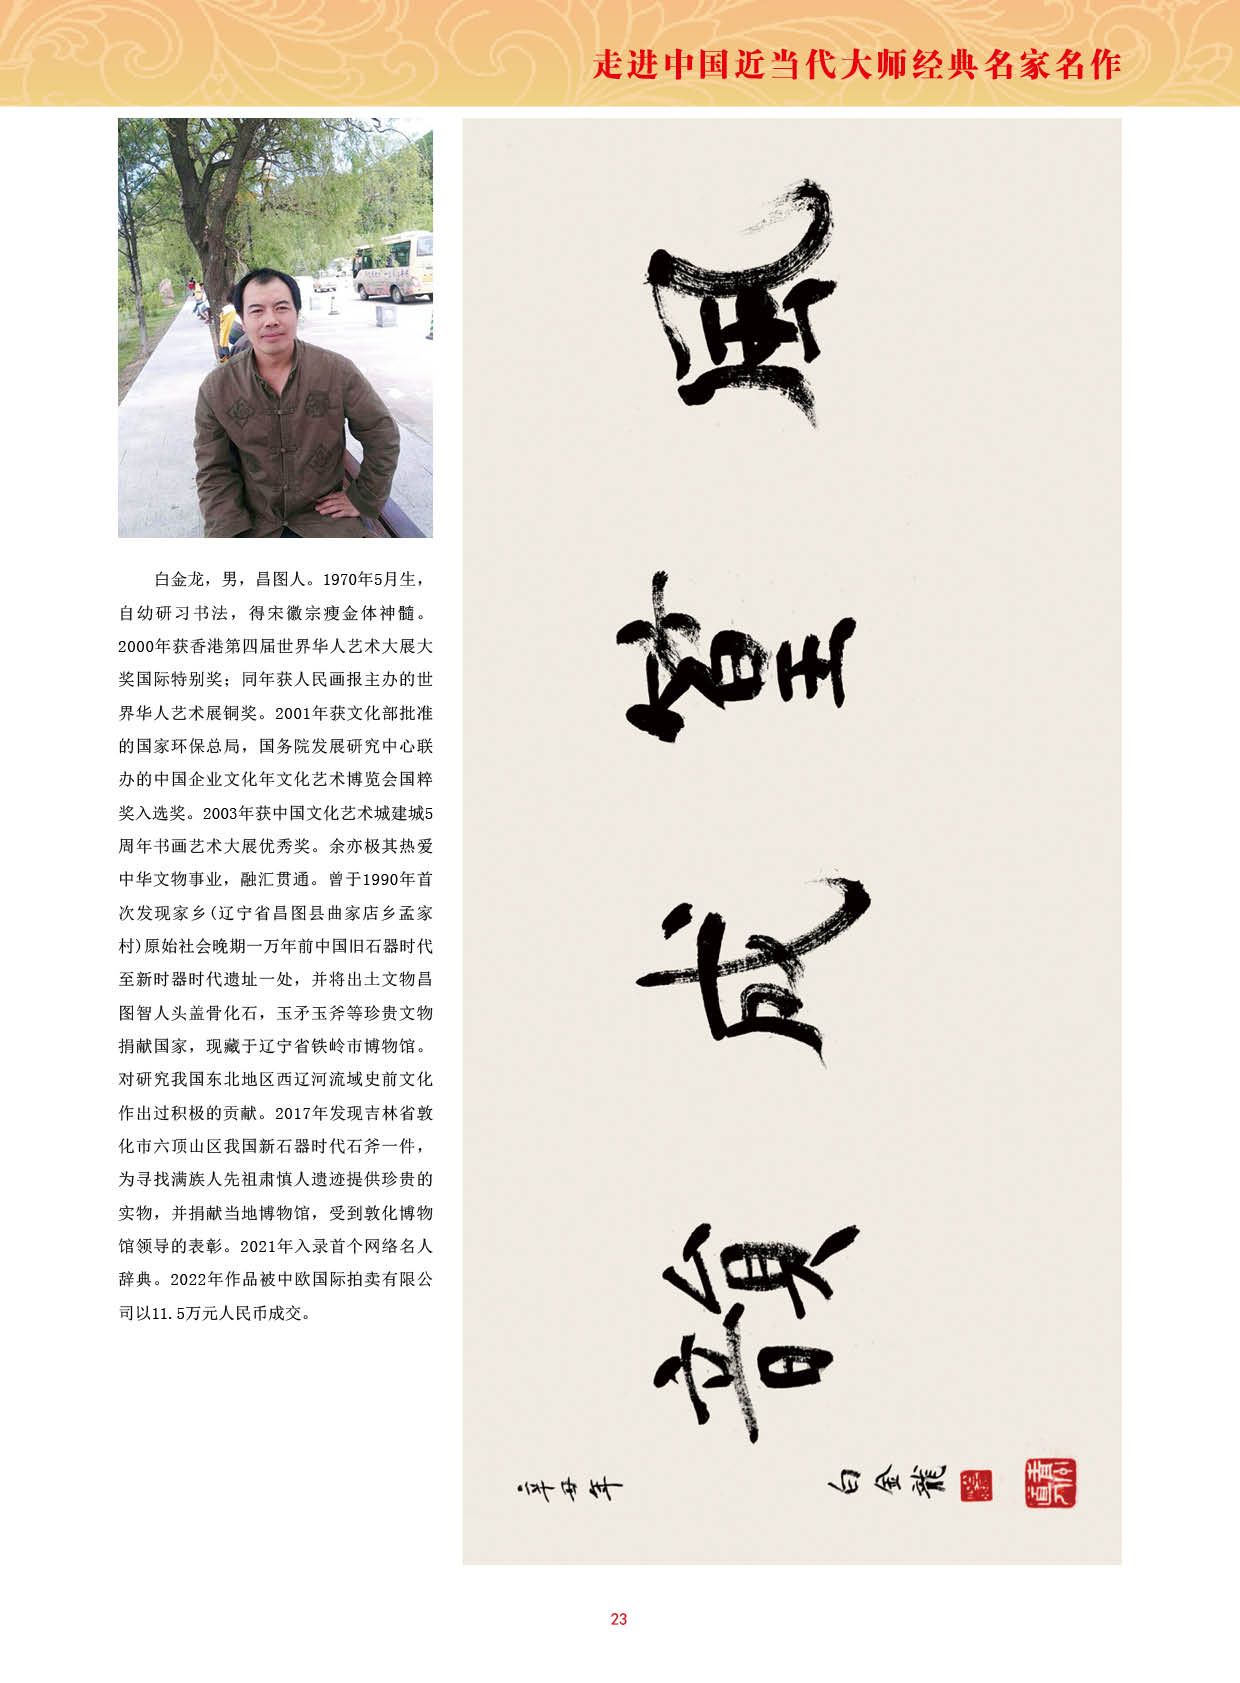 走进中国近当代大师经典名家名作
白金龙，男，昌图人。1970年5月生，
自幼研习书法，得宋徽宗瘦金体神髓。
2000年获香港第四届世界华人艺术大展大
奖国际特别奖；同年获人民画报主办的世
界华人艺术展铜奖。2001年获文化部批准
的国家环保总局，国务院发展研究中心联
办的中国企业文化年文化艺术博览会国粹
奖入选奖。2003年获中国文化艺术城建城5
周年书画艺术大展优秀奖。余亦极其热爱
中华文物事业，融汇贯通。曾于1990年首
次发现家乡(辽宁省昌图县曲家店乡孟家
村)原始社会晚期一万年前中国旧石器时代
至新时器时代遗址一处，并将出土文物昌
图智人头盖骨化石，玉矛玉斧等珍贵文物
捐献国家，现藏于辽宁省铁岭市博物馆。
对研究我国东北地区西辽河流域史前文化
作出过积极的贡献。2017年发现吉林省敦
化市六顶山区我国新石器时代石斧一件，
为寻找满族人先祖肃慎人遗迹提供珍贵的
实物，并捐献当地博物馆，受到敦化博物
馆领导的表彰。2021年入录首个网络名人
辞典。2022年作品被中欧国际拍卖有限公
司以11.5万元人民币成交。
成
辛丑年
白金龍
23